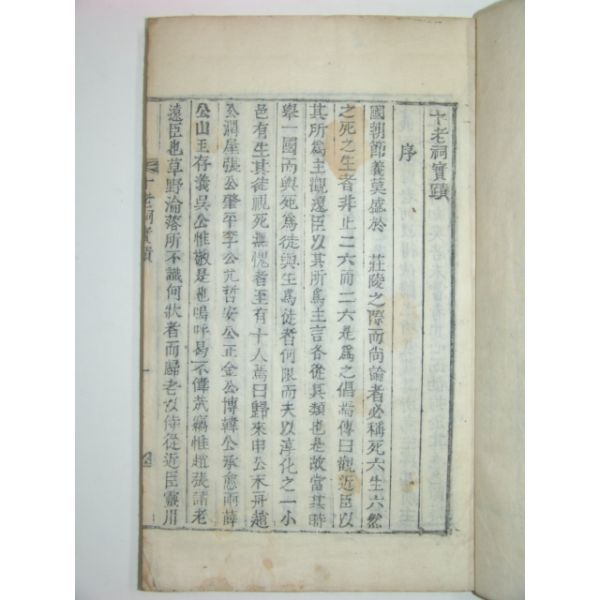 十老祠實蹟
序
國朝節義莫盛於 莊陵之際而尙論者必稱死六生六然
之死之生者非止二六而二六是爲之倡焉傳曰觀近臣以
其所爲主觀遠臣以其所爲主言各從其類也是故當其時
擧一國而與死爲徒與生爲徒者何限而夫以淳化之一小
邑有生其徒視死無愧者至有十人焉曰歸來申公末舟趙
公澗屋張公肇平李公亢哲安公正金公博韓公承愈兩薛
公山玉存義吳公惟敬是也嗚呼曷不偉哉竊惟趙張諸老
遠臣也草野淪落所不識何狀者而歸老以侍從近臣靈川
十老祠實蹟